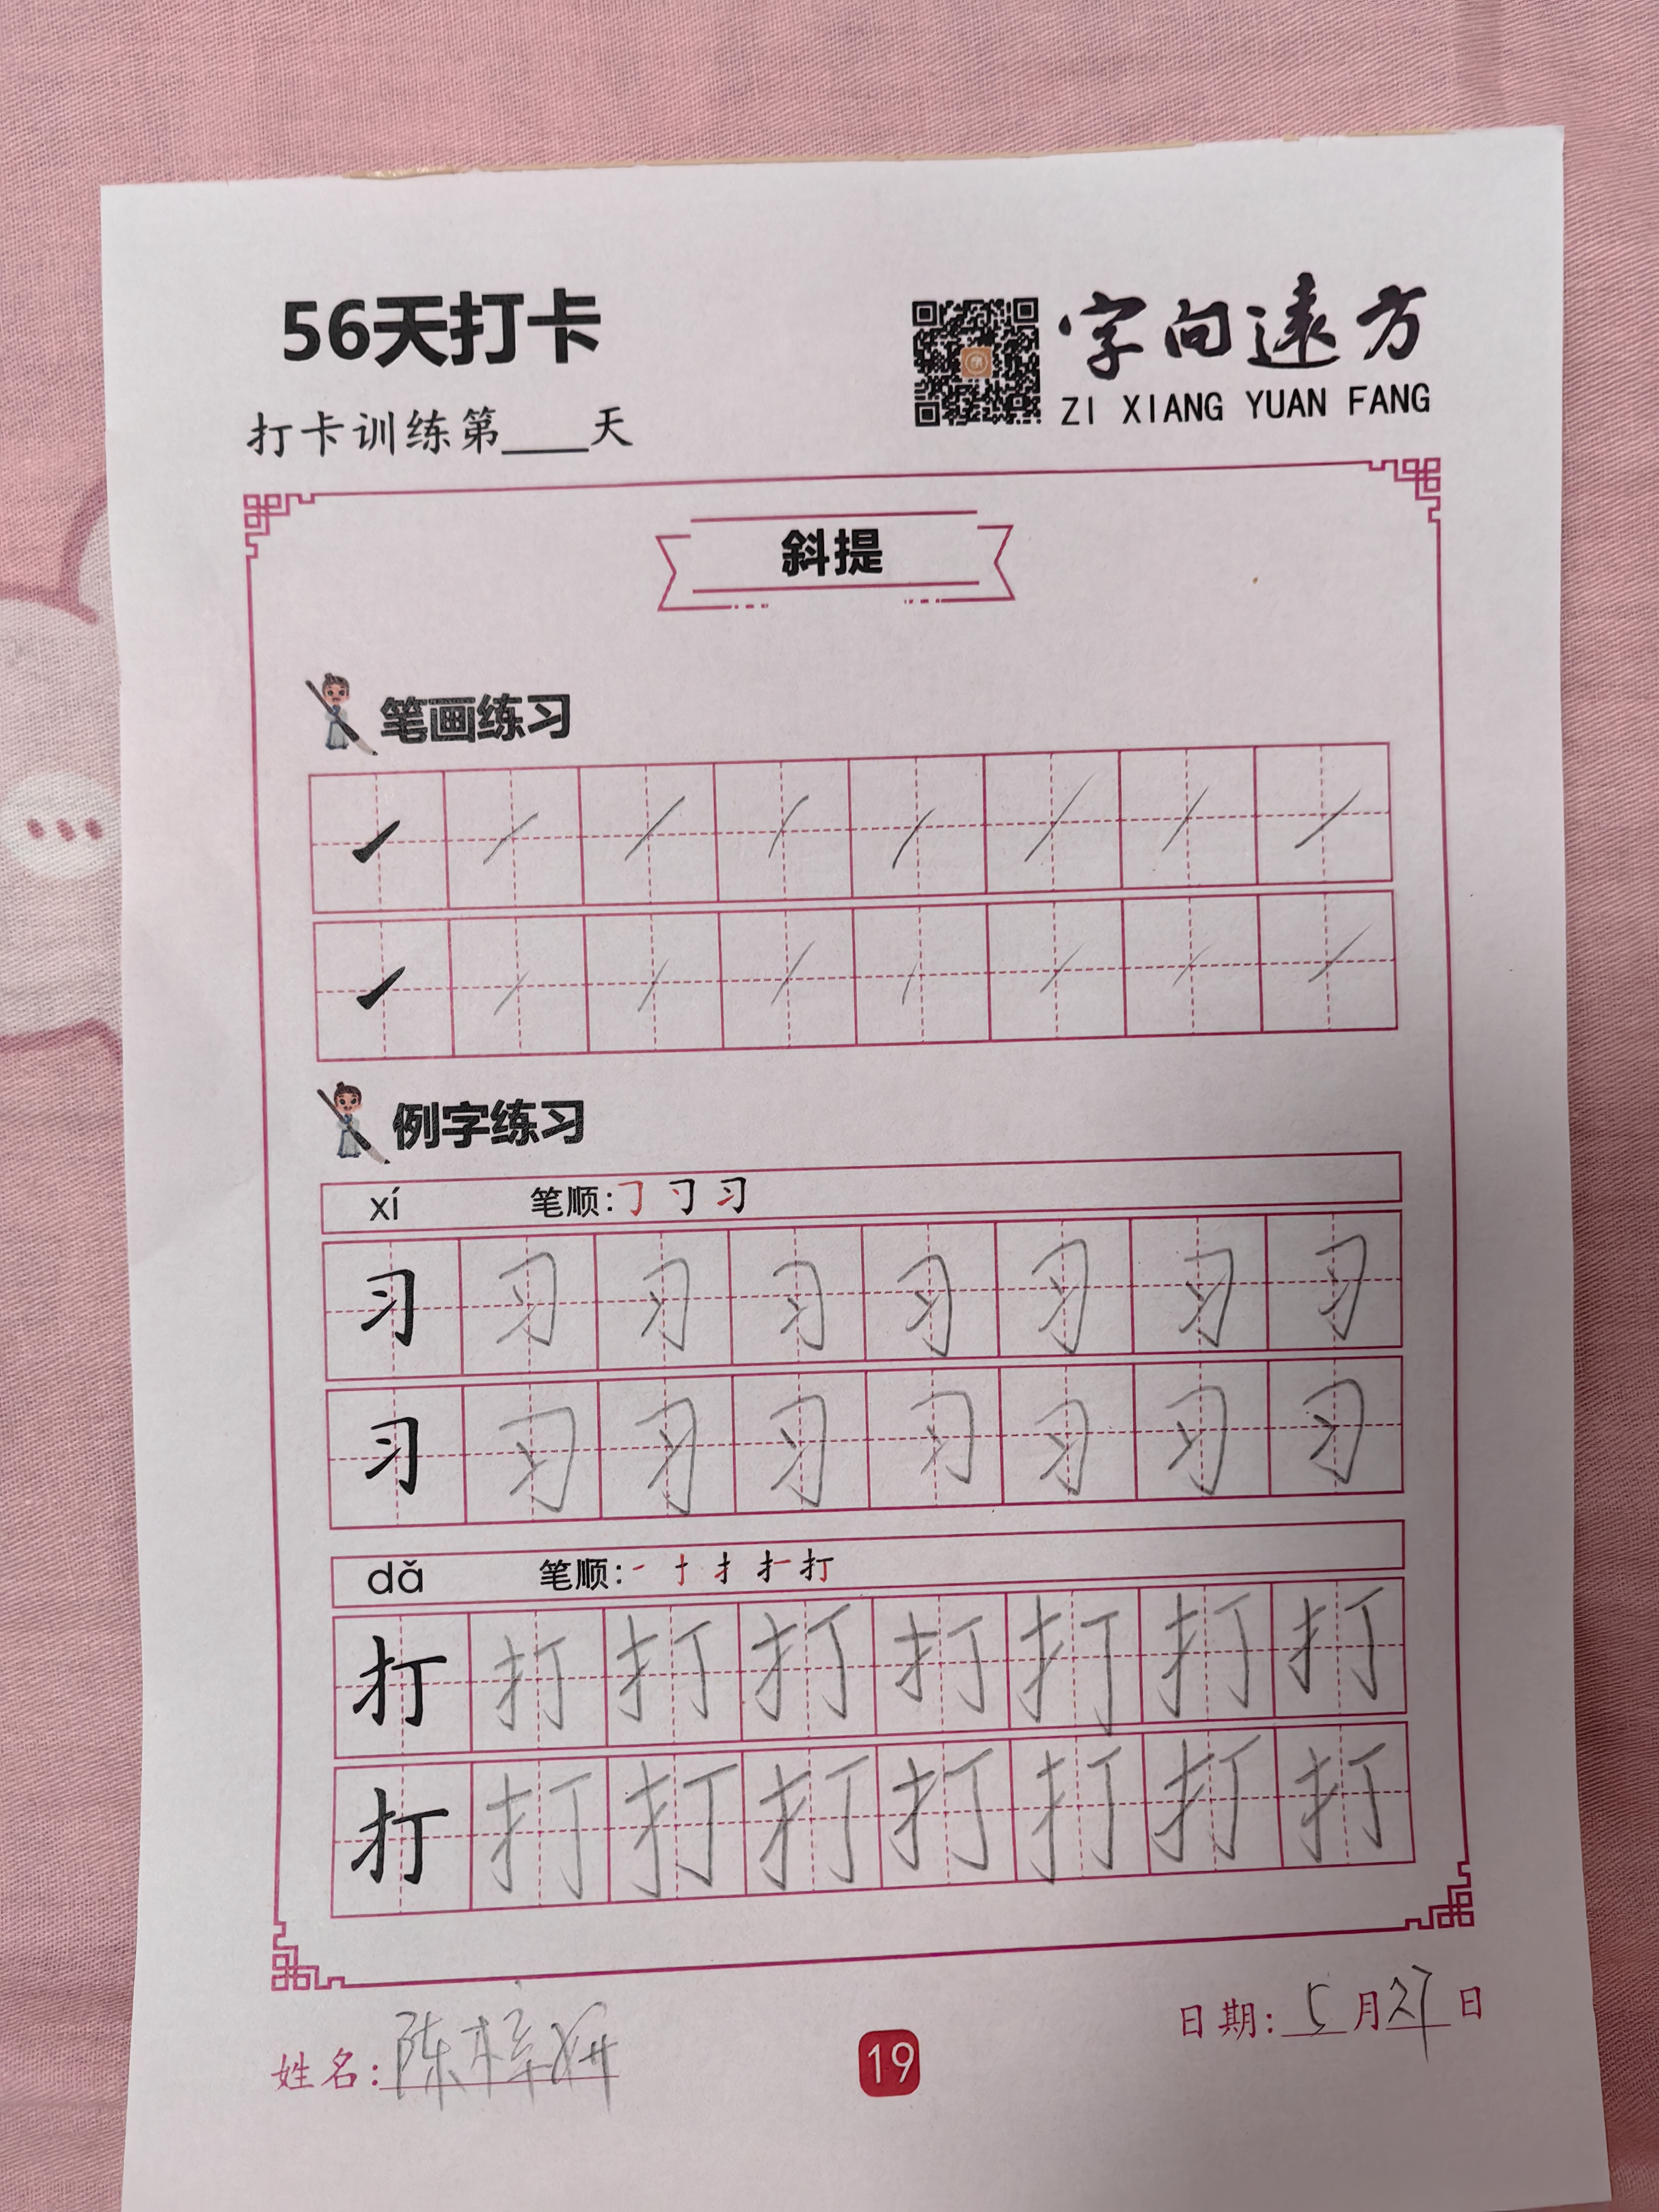 56天打卡
字向远方
ZI XIANG YUAN FANG
打卡训练第____天
斜提
笔画练习
例字练习
xí 笔顺:㇆ 刁 习
习 习 习 习 习 习 习 习
习 习 习 习 习 习 习 习
dǎ 笔顺:一 十 扌 扌一 打
打 打 打 打 打 打 打 打
打 打 打 打 打 打 打 打
日期: 5月27日
姓名: 陈梓妍
19